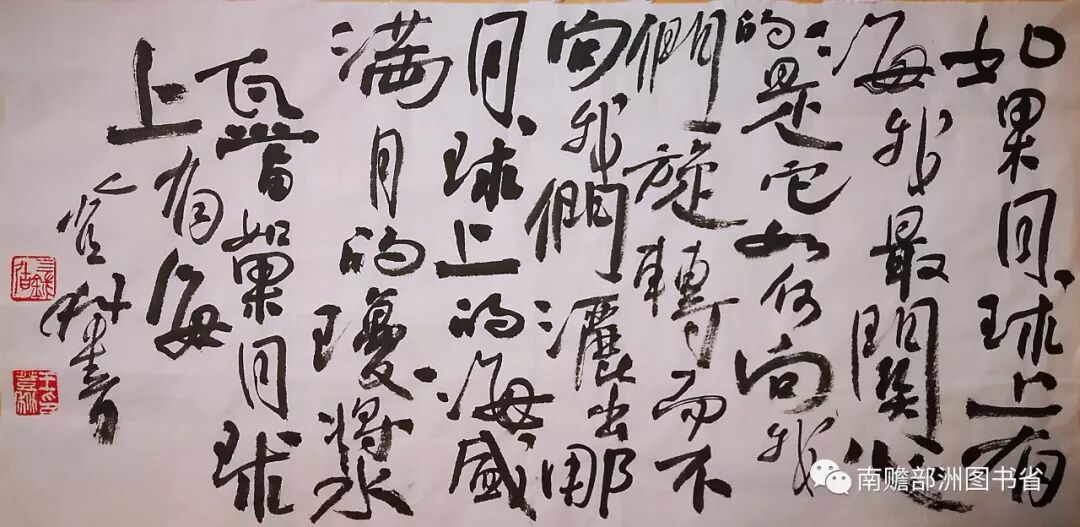 如果月球上有
海我最關心
的是它如何向我
們旋轉而不
向我們灑出那
月球上的海盛
滿月的瓊漿
瓦當如果月球
上有海
書
南赡部洲图书省